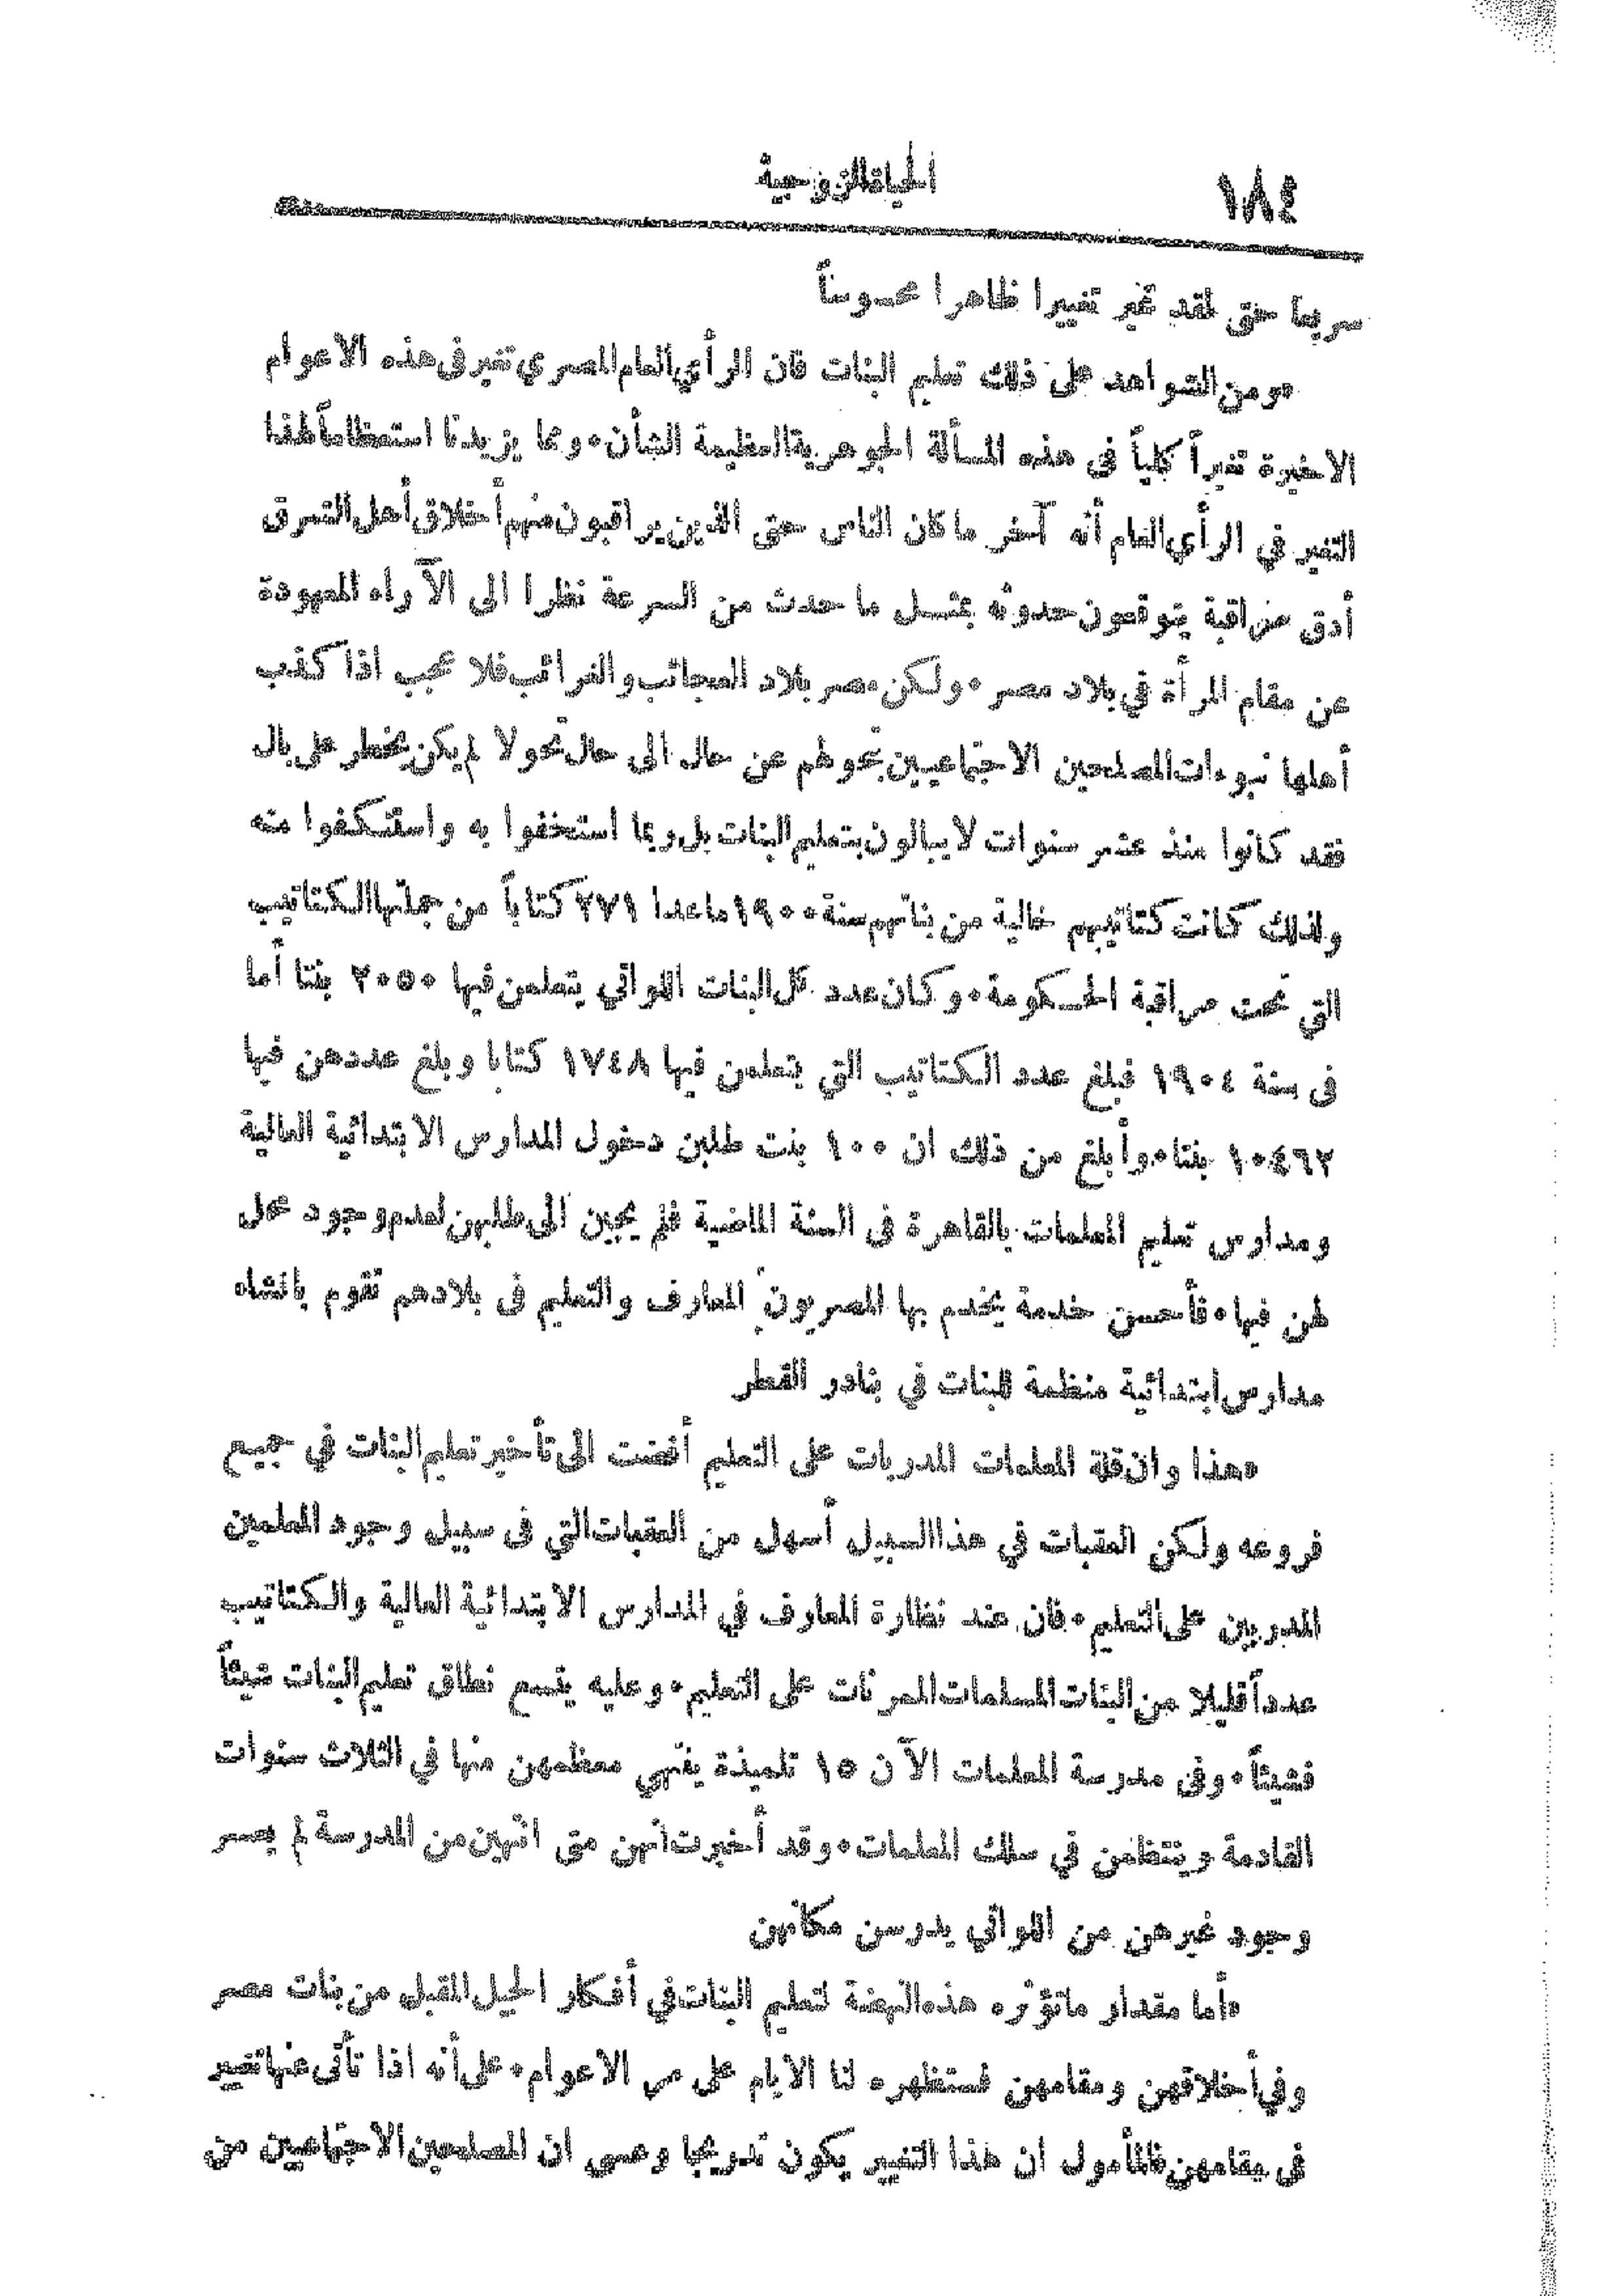 ١٨٤
الحياة الزوجية
سريعا حتى لقد تغير تغييرا ظاهرا محسوساً
«ومن الشواهد على ذلك تعليم البنات فان الرأي العام المصري تغير فى هذه الاعوام
الاخيرة تغيراً كلياً فى هذه المسألة الجوهرية العظيمة الشأن٠ ومما يزيدنا استعظاماً لهذا
التغير في الرأي العام أنه آخر ما كان الناس حتى الذين يراقبون منهم أخلاق أهل الشرق
أدق مراقبة يتوقعون حدوثه بمثل ما حدث من السرعة نظرا الى الآراء المعهودة
عن مقام المرأة في بلاد مصر٠ ولكن مصر بلاد العجائب والغرائب فلا عجب اذا كذب
أهلها نبوءات المصلحين الاجتماعيين بتحولهم عن حال الى حال تحولا لم يكن يخطر على بال
فقد كانوا منذ عشر سنوات لا يبالون بتعليم البنات بل ربما استخفوا به واستنكفوا منه
ولذلك كانت كتاتيبهم خالية من بناتهم سنة ١٩٠٠ ماعدا ٢٧١ كتاباً من جملتها الكتاتيب
التي تحت مراقبة الحكومة٠ وكان عدد كل البنات اللواتي يتعلمن فيها ٢٠٥٠ بنتا أما
فى سنة ١٩٠٤ فبلغ عدد الكتاتيب التي يتعلمن فيها ١٧٤٨ كتابا وبلغ عددهن فيها
١٠٤٦٢ بنتا٠ وأبلغ من ذلك ان ١٠٠ بنت طلبن دخول المدارس الابتدائية العالية
ومدارس تعليم المعلمات بالقاهرة فى السنة الماضية فلم يجبن الى طلبهن لعدم وجود محل
لهن فيها٠ فأحسن خدمة يخدم بها المصريون المعارف والتعليم فى بلادهم تقوم بانشاء
مدارس ابتدائية منظمة للبنات في بنادر القطر
«هذا وان قلة المعلمات المدربات على التعليم أفضت الى تأخير تعليم البنات في جميع
فروعه ولكن العقبات في هذا السبيل أسهل من العقبات التي فى سبيل وجود المعلمين
المدربين على التعليم٠ فان عند نظارة المعارف في المدارس الابتدائية العالية والكتاتيب
عدداً قليلا من البنات المسلمات المعرنات على التعليم٠ وعليه يتسع نطاق تعليم البنات شيئاً
فشيئاً٠ وفى مدرسة المعلمات الآن ١٥ تلميذة ينتهي معظمهن منها في الثلاث سنوات
القادمة وينتظمن في سلك المعلمات٠ وقد أخبرت انهن متى انتهين من المدرسة لم يعسر
وجود غيرهن من اللواتي يدرسن مكانهن
«أما مقدار ما تؤثره هذه النهضة لتعليم البنات في أفكار الجيل المقبل من بنات مصر
وفي أخلاقهن ومقامهن فستظهره لنا الايام على مر الاعوام٠ على أنه اذا تأتى عنها تغيير
فى مقامهن فالمأمول ان هذا التغيير يكون تدريجيا وعسى ان المصلحين الاجتماعيين من